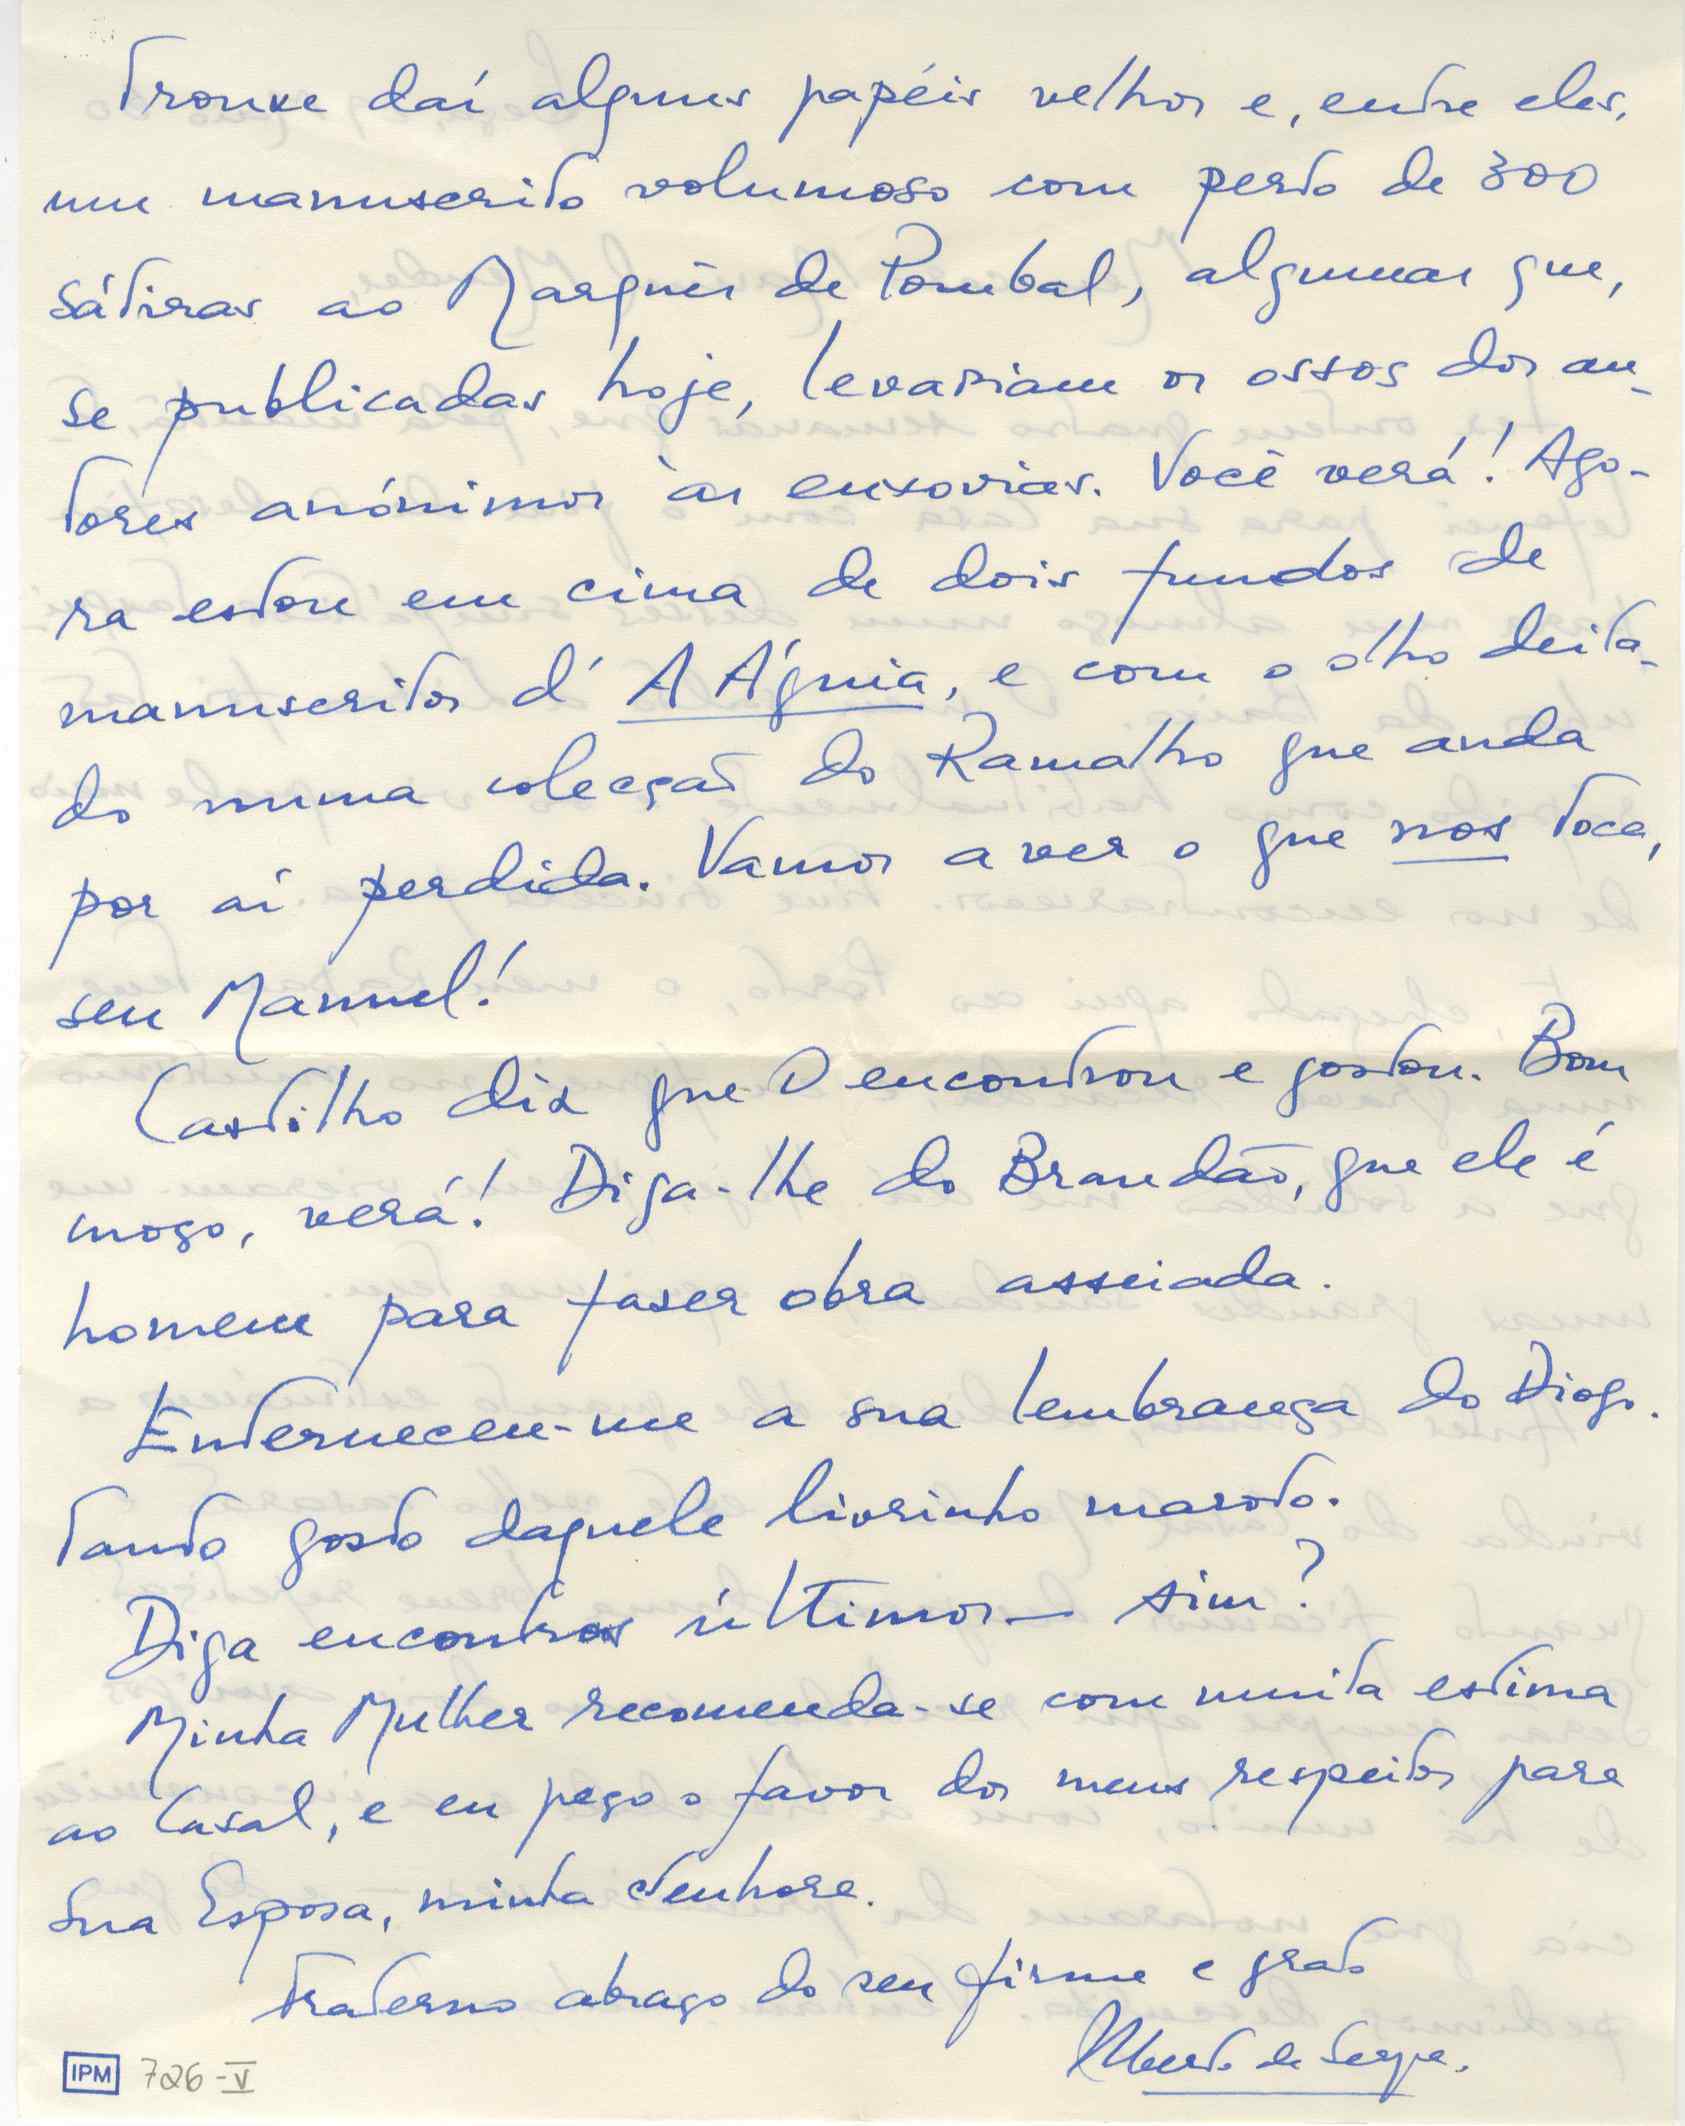 Trouxe daí alguns papéis velhos e, entre eles,
um manuscrito volumoso com perto de 300
sátiras ao Marquês de Pombal, algumas que,
se publicadas hoje, levariam os ossos dos au-
tores anónimos às enxovias. Você verá! Ago-
ra estou em cima de dois fundos de
manuscritos d'A Águia, e com o olho deita-
do numa colecção do Ramalho que anda
por aí perdida. Vamos a ver o que nos toca,
seu Manuel!
Castilho diz que O encontrou e gostou. Bom
moço, verá! Diga-lhe do Brandão, que ele é
homem para fazer obra asseiada.
Enterneceu-me a sua lembrança do Diogo.
Tanto gosto daquele livrinho maroto.
Diga encontros últimos — sim?
Minha Mulher recomenda-se com muita estima
ao Casal, e eu peço o favor dos meus respeitos para
Sua Esposa, minha Senhora.
Fraterno abraço do seu firme e grato
Alberto de Serpa.
IPM 726-V